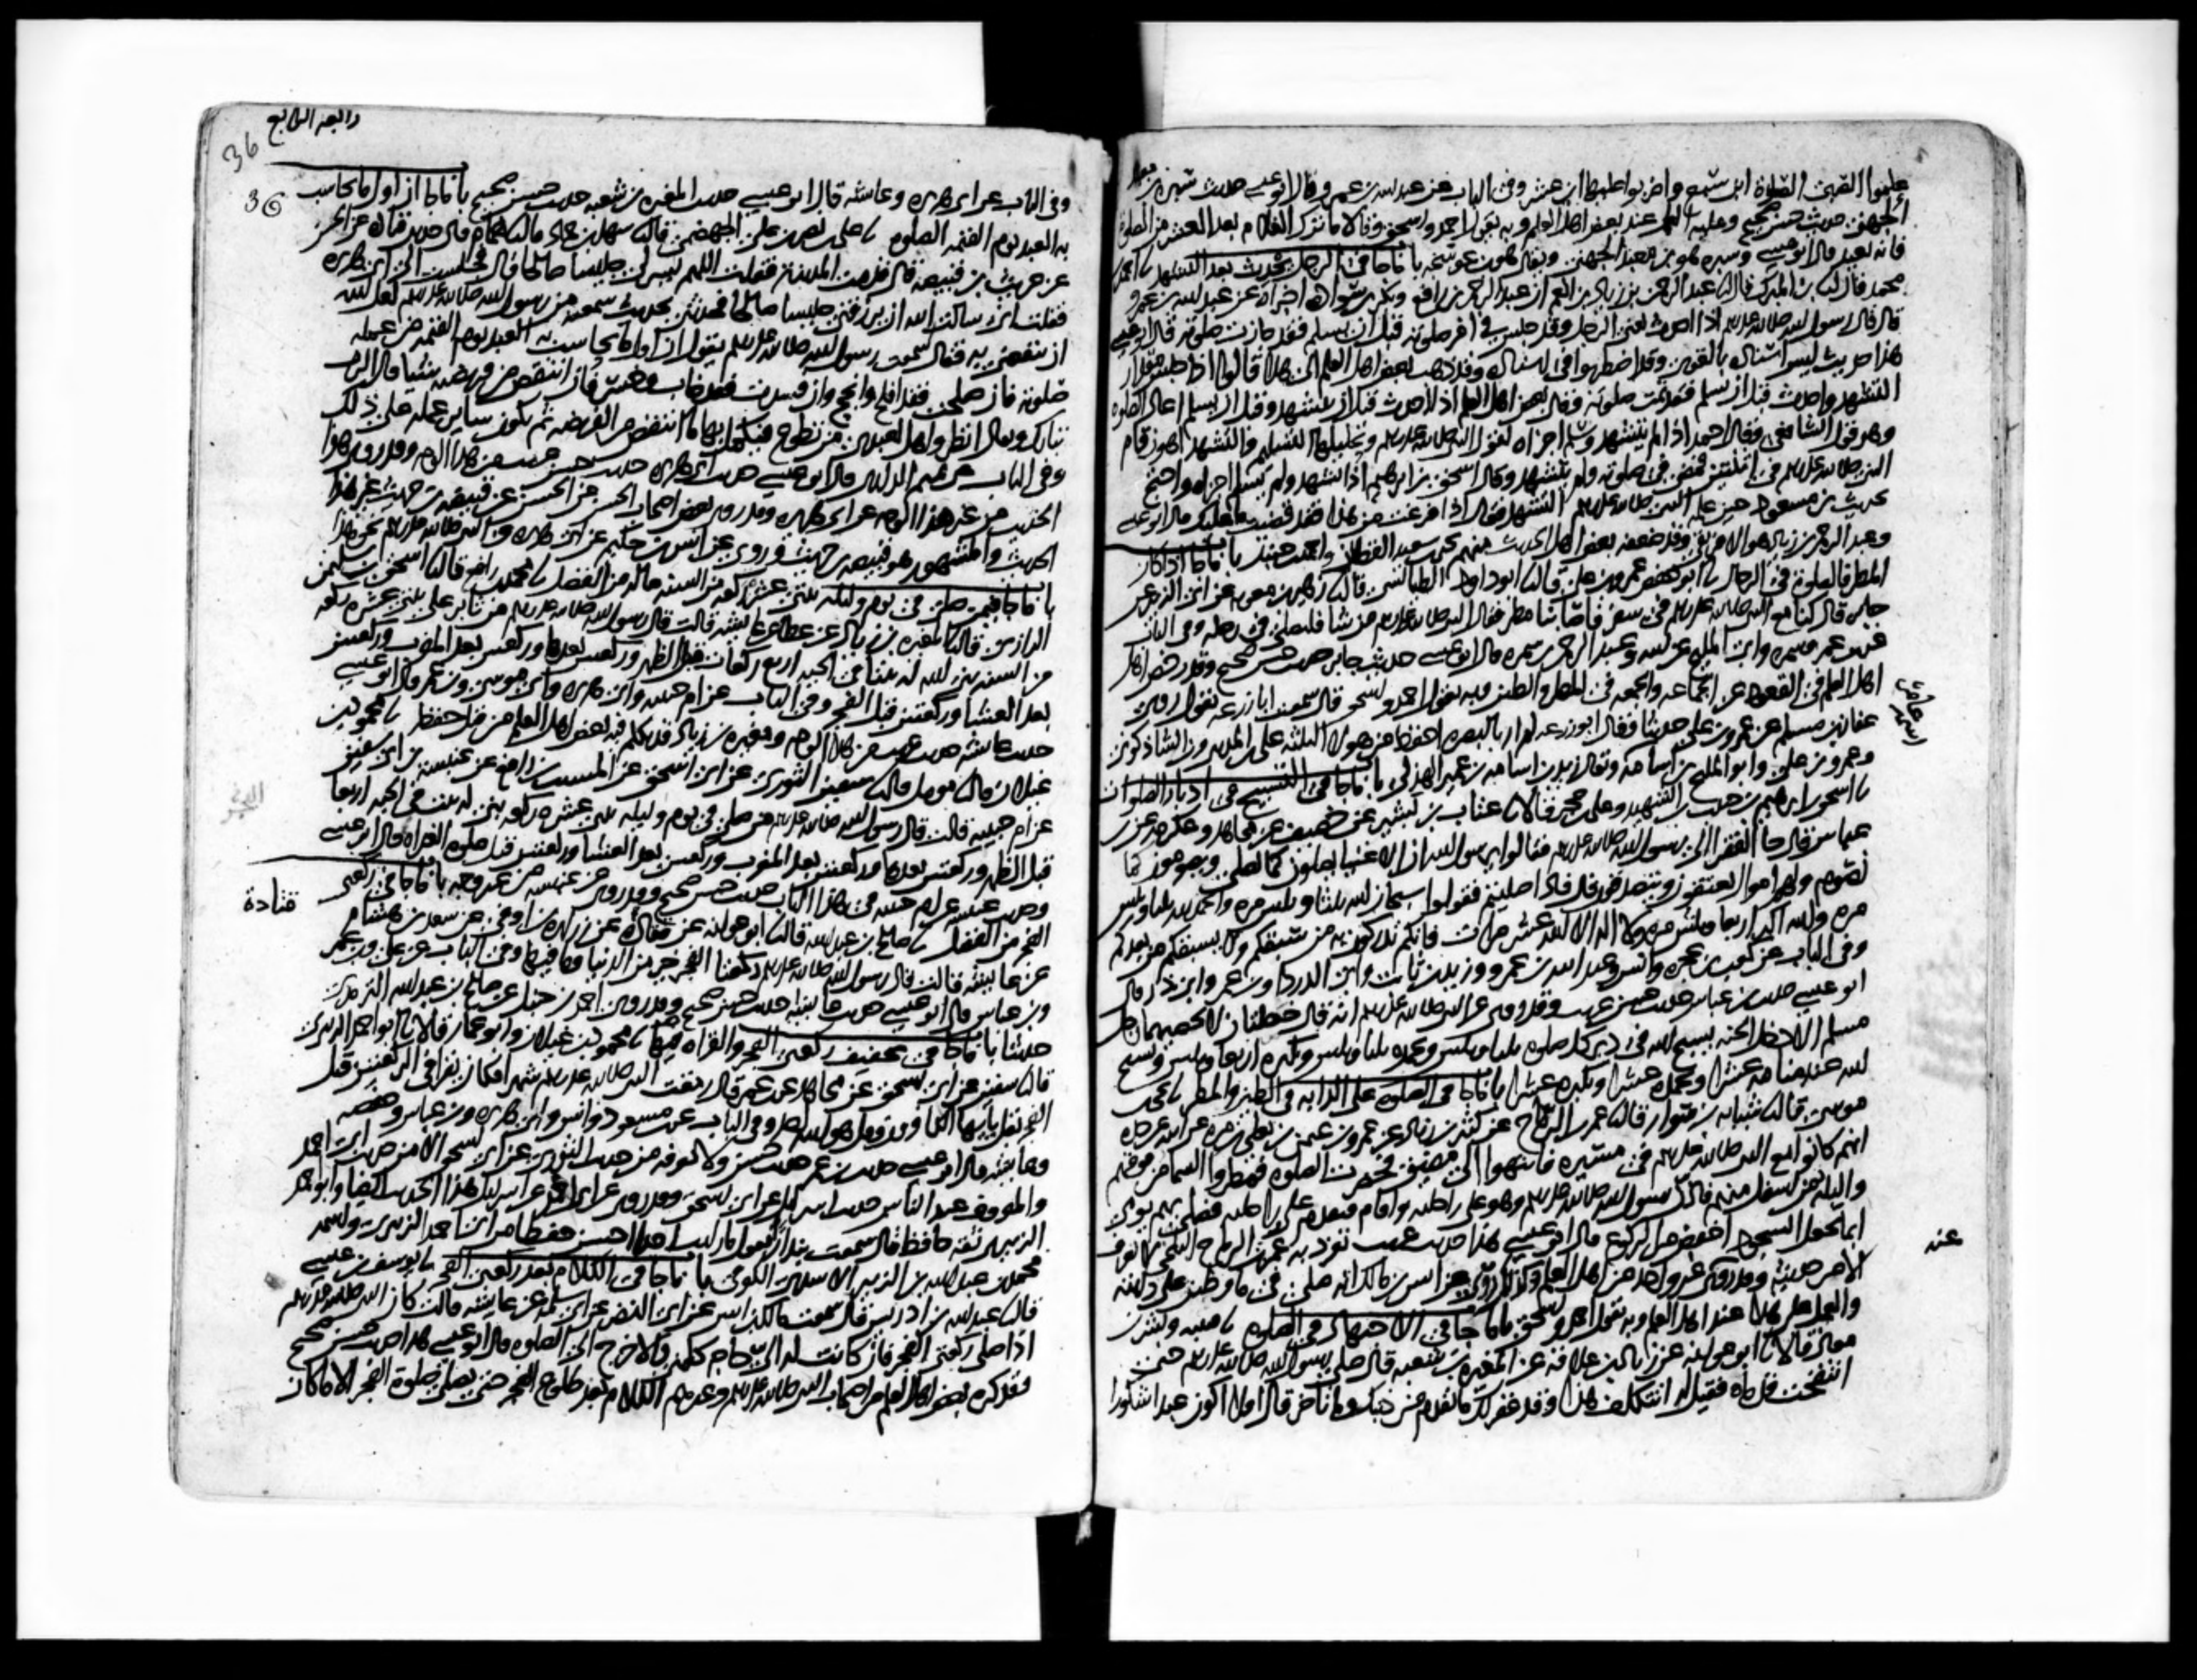 علموا الصبى الصلاة ابن سبع واضربوا عليها ابن عشر وفى الباب عن عبد الله بن عمرو قال ابو عيسى حديث سبرة بن معبد
الجهنى حديث حسن صحيح وعليه العمل عند بعض اهل العلم وبه يقول احمد واسحق وقالا ما ترك الغلام بعد العشر من الصلوة
فانه يعيد قال ابو عيسى وسبرة هو بن معبد الجهنى ويقال هو بن عوسجة باب ما جا فى الرجل يحدث بعد التشهد نا احمد بن
محمد قال نا بن المبرك قال نا عبد الرحمن بن زياد بن انعم ان عبد الرحمن بن رافع وبكر بن سوادة اخبراه عن عبد الله بن عمرو
قال قال رسول الله صلى الله عليه وسلم اذا احدث يعنى الرجل وقد جلس فى اخر صلوته قبل ان يسلم فقد جازت صلوته قال ابو عيسى
هذا حديث ليس اسناده بالقوى وقد اضطربوا فى اسناده وقد ذهب بعض اهل العلم الى هذا قالوا اذا جلس مقدار
التشهد واحدث قبل ان يسلم فقد تمت صلوته وقال بعض اهل العلم اذا احدث قبل ان يتشهد وقبل ان يسلم اعاد الصلوة
وهو قول الشافعى وقال احمد اذا لم يتشهد وسلم اجزاه لقول النبى صلى الله عليه وسلم وتحليلها التسليم والتشهد اهون قام
النبى صلى الله عليه وسلم فى اثنتين فمضى فى صلوته ولم يتشهد وقال اسحق بن ابرهيم اذا تشهد ولم يسلم اجزاه واحتج
بحديث بن مسعود حين علمه النبى صلى الله عليه وسلم التشهد فقال اذا فرغت من هذا فقد قضيت ما عليك قال ابو عيسى
وعبد الرحمن بن زياد هو الافريقى وقد ضعفه بعض اهل الحديث منهم يحيى بن سعيد القطان واحمد بن حنبل باب ما جا اذا كان
المطر فالصلوة فى الرحال نا ابو حفص عمرو بن على قال نا ابو داود الطيالسى قال نا زهير بن معوية عن ابى الزبير عن
جابر قال كنا مع النبى صلى الله عليه وسلم فى سفر فاصابنا مطر فقال النبى صلى الله عليه وسلم من شا فليصل فى رحله وفى الباب
عن بن عمر وسمرة وابى المليح عن ابيه وعبد الرحمن بن سمرة قال ابو عيسى حديث جابر حديث حسن صحيح وقد رخص
اهل العلم فى القعود عن الجماعة والجمعة فى المطر والطين وبه يقول احمد واسحق قال سمعت ابا زرعة يقول روى
عفان بن مسلم عن عمرو بن على حديثا وقال ابو زرعة لم ار بالبصرة احفظ من هولا الثلثة على بن المدينى وبن الشاذكونى
وعمرو بن على وابو المليح بن اسامة ويقال زيد بن اسامة بن عمير الهذلى باب ما جا فى التسبيح فى ادبار الصلوات
نا اسحق بن ابرهيم بن حبيب بن الشهيد وعلى بن حجر قالا نا عتاب بن بشير عن خصيف عن مجاهد وعكرمة عن بن
عباس قال جا الفقرا الى رسول الله صلى الله عليه وسلم فقالوا يرسول الله ان الاغنيا يصلون كما نصلى ويصومون كما
نصوم ولهم اموال يعتقون ويتصدقون قال فاذا صليتم فقولوا سبحان الله ثلثا وثلثين مرة والحمد لله ثلثا وثلثين
مرة والله اكبر اربعا وثلثين مرة ولا اله الا الله عشر مرات فانكم تدركون به من سبقكم ولا يسبقكم من بعدكم
وفى الباب عن كعب بن عجرة وانس وعبد الله بن عمرو وزيد بن ثابت وابى الدردا وبن عمر وابى ذر قال
ابو عيسى حديث بن عباس حديث حسن غريب وقد روى عن النبى صلى الله عليه وسلم انه قال خصلتان لا يحصيهما رجل
مسلم الا دخل الجنة يسبح الله فى دبر كل صلوة ثلثا وثلثين ويحمده ثلثا وثلثين ويكبره اربعا وثلثين ويسبح
الله عند منامه عشرا ويحمده عشرا ويكبره عشرا باب ما جا فى الصلوة على الدابة فى الطين والمطر نا يحيى بن
موسى قال نا شبابة بن سوار قال نا عمر بن الرماح عن كثير بن زياد عن عمرو بن عثمن بن يعلى بن مرة عن ابيه عن جده
انهم كانوا مع النبى صلى الله عليه وسلم فى مسيره فانتهوا الى مضيق فحضرت الصلوة فمطروا السما من فوقهم
والبلة من اسفل منهم فاذن رسول الله صلى الله عليه وسلم وهو على راحلته واقام فتقدم على راحلته فصلى بهم يومى
ايما يجعل السجود اخفض من الركوع قال ابو عيسى هذا حديث غريب تفرد به عمر بن الرماح البلخى لا يعرف
الا من حديثه وقد روى عنه غير واحد من اهل العلم وكذلك روى عن انس بن مالك انه صلى فى ما وطين على دابته
والعمل على هذا عند اهل العلم وبه يقول احمد واسحق باب ما جا فى الاجتهاد فى الصلوة نا قتيبة وبشر بن
معاذ قالا نا ابو عوانة عن زياد بن علاقة عن المغيرة بن شعبة قال صلى رسول الله صلى الله عليه وسلم حتى
انتفخت قدماه فقيل له اتتكلف هذا وقد غفر لك ما تقدم من ذنبك وما تاخر قال افلا اكون عبدا شكورا
عنه
رابعه الرابع
36
36
وفى الباب عن ابى هريرة وعائشة قال ابو عيسى حديث المغيرة بن شعبة حديث حسن صحيح باب ما جا ان اول ما يحاسب
به العبد يوم القيمة الصلوة نا على بن نصر بن على الجهضمى قال نا سهل بن حماد قال نا همام قال حدثنى قتادة عن الحسن
عن حريث بن قبيصة قال قدمت المدينة فقلت اللهم يسر لى جليسا صالحا قال فجلست الى ابى هريرة
فقلت انى سالت الله ان يرزقنى جليسا صالحا فحدثنى بحديث سمعته من رسول الله صلى الله عليه وسلم لعل الله
ان ينفعنى به فقال سمعت رسول الله صلى الله عليه وسلم يقول ان اول ما يحاسب به العبد يوم القيمة من عمله
صلوته فان صلحت فقد افلح وانجح وان فسدت فقد خاب وخسر فان انتقص من فريضته شيئا قال الرب
تبارك وتعالى انظروا هل لعبدى من تطوع فيكمل بها ما انتقص من الفريضة ثم يكون ساير عمله على ذلك
وفى الباب عن تميم الدارى قال ابو عيسى حديث ابى هريرة حديث حسن غريب من هذا الوجه وقد روى هذا
الحديث من غير هذا الوجه عن ابى هريرة وقد روى بعض اصحاب الحسن عن الحسن عن قبيصة بن حريث غير هذا
الحديث والمشهور هو قبيصة بن حريث وروى عن انس بن حكيم عن ابى هريرة عن النبى صلى الله عليه وسلم نحو هذا
باب ما جا فيمن صلى فى يوم وليلة ثنتى عشرة ركعة من السنة ما له من الفضل نا محمد بن رافع قال نا اسحق بن سليمن
الرازى قال نا المغيرة بن زياد عن عطا عن عايشة قالت قال رسول الله صلى الله عليه وسلم من ثابر على ثنتى عشرة ركعة
من السنة بنى الله له بيتا فى الجنة اربع ركعات قبل الظهر وركعتين بعدها وركعتين بعد المغرب وركعتين
بعد العشا وركعتين قبل الفجر وفى الباب عن ام حبيبة وابى هريرة وابى موسى وبن عمر قال ابو عيسى
حديث عايشة حديث غريب من هذا الوجه ومغيرة بن زياد قد تكلم فيه بعض اهل العلم من قبل حفظه نا محمود بن
غيلان قال نا مومل قال نا سفين الثورى عن ابى اسحق عن المسيب بن رافع عن عنبسة بن ابى سفين
عن ام حبيبة قالت قال رسول الله صلى الله عليه وسلم من صلى فى يوم وليلة ثنتى عشرة ركعة بنى له بيت فى الجنة اربعا
قبل الظهر وركعتين بعدها وركعتين بعد المغرب وركعتين بعد العشا وركعتين قبل صلوة الغداة قال ابو عيسى
وحديث عنبسة عن ام حبيبة فى هذا الباب حديث حسن صحيح وقد روى عن عنبسة من غير وجه باب ما جا فى ركعتى
قتادة
الفجر من الفضل نا صالح بن عبد الله قال نا ابو عوانة عن قتادة عن زرارة بن اوفى عن سعد بن هشام
عن عايشة قالت قال رسول الله صلى الله عليه وسلم ركعتا الفجر خير من الدنيا وما فيها وفى الباب عن على وبن عمر
وبن عباس قال ابو عيسى حديث عايشة حديث حسن صحيح وقد روى احمد بن حنبل عن صالح بن عبد الله الترمذى
حديثا باب ما جا فى تخفيف ركعتى الفجر والقراه فيها نا محمود بن غيلان وابو عمار قالا نا ابو احمد الزبيرى
قال نا سفين عن ابى اسحق عن مجاهد عن بن عمر قال رمقت النبى صلى الله عليه وسلم شهرا فكان يقرا فى الركعتين قبل
الفجر بقل يا ايها الكافرون وقل هو الله احد وفى الباب عن بن مسعود وانس وابى هريرة وبن عباس وحفصة
وعايشة قال ابو عيسى حديث بن عمر حديث حسن ولا نعرفه من حديث الثورى عن ابى اسحق الا من حديث ابى احمد
والمعروف عند الناس حديث اسرائيل عن ابى اسحق وقد روى عن ابى احمد عن اسرائيل هذا الحديث ايضا وابو احمد
الزبيرى ثقة حافظ قال سمعت بندارا يقول ما رايت احدا احسن حفظا من ابى احمد الزبيرى واسمه
محمد بن عبد الله بن الزبير الاسدى الكوفى باب ما جا فى الكلام بعد ركعتى الفجر نا يوسف بن عيسى
قال نا عبد الله بن ادريس قال سمعت مالك بن انس عن ابى النضر عن ابى سلمة عن عايشة قالت كان النبى صلى الله عليه وسلم
اذا صلى ركعتى الفجر فان كانت له الى حاجة كلمنى والا خرج الى الصلوة قال ابو عيسى هذا حديث حسن صحيح
وقد كره بعض اهل العلم من اصحاب النبى صلى الله عليه وسلم وغيرهم الكلام بعد طلوع الفجر حتى يصلى صلوة الفجر الا ما كان